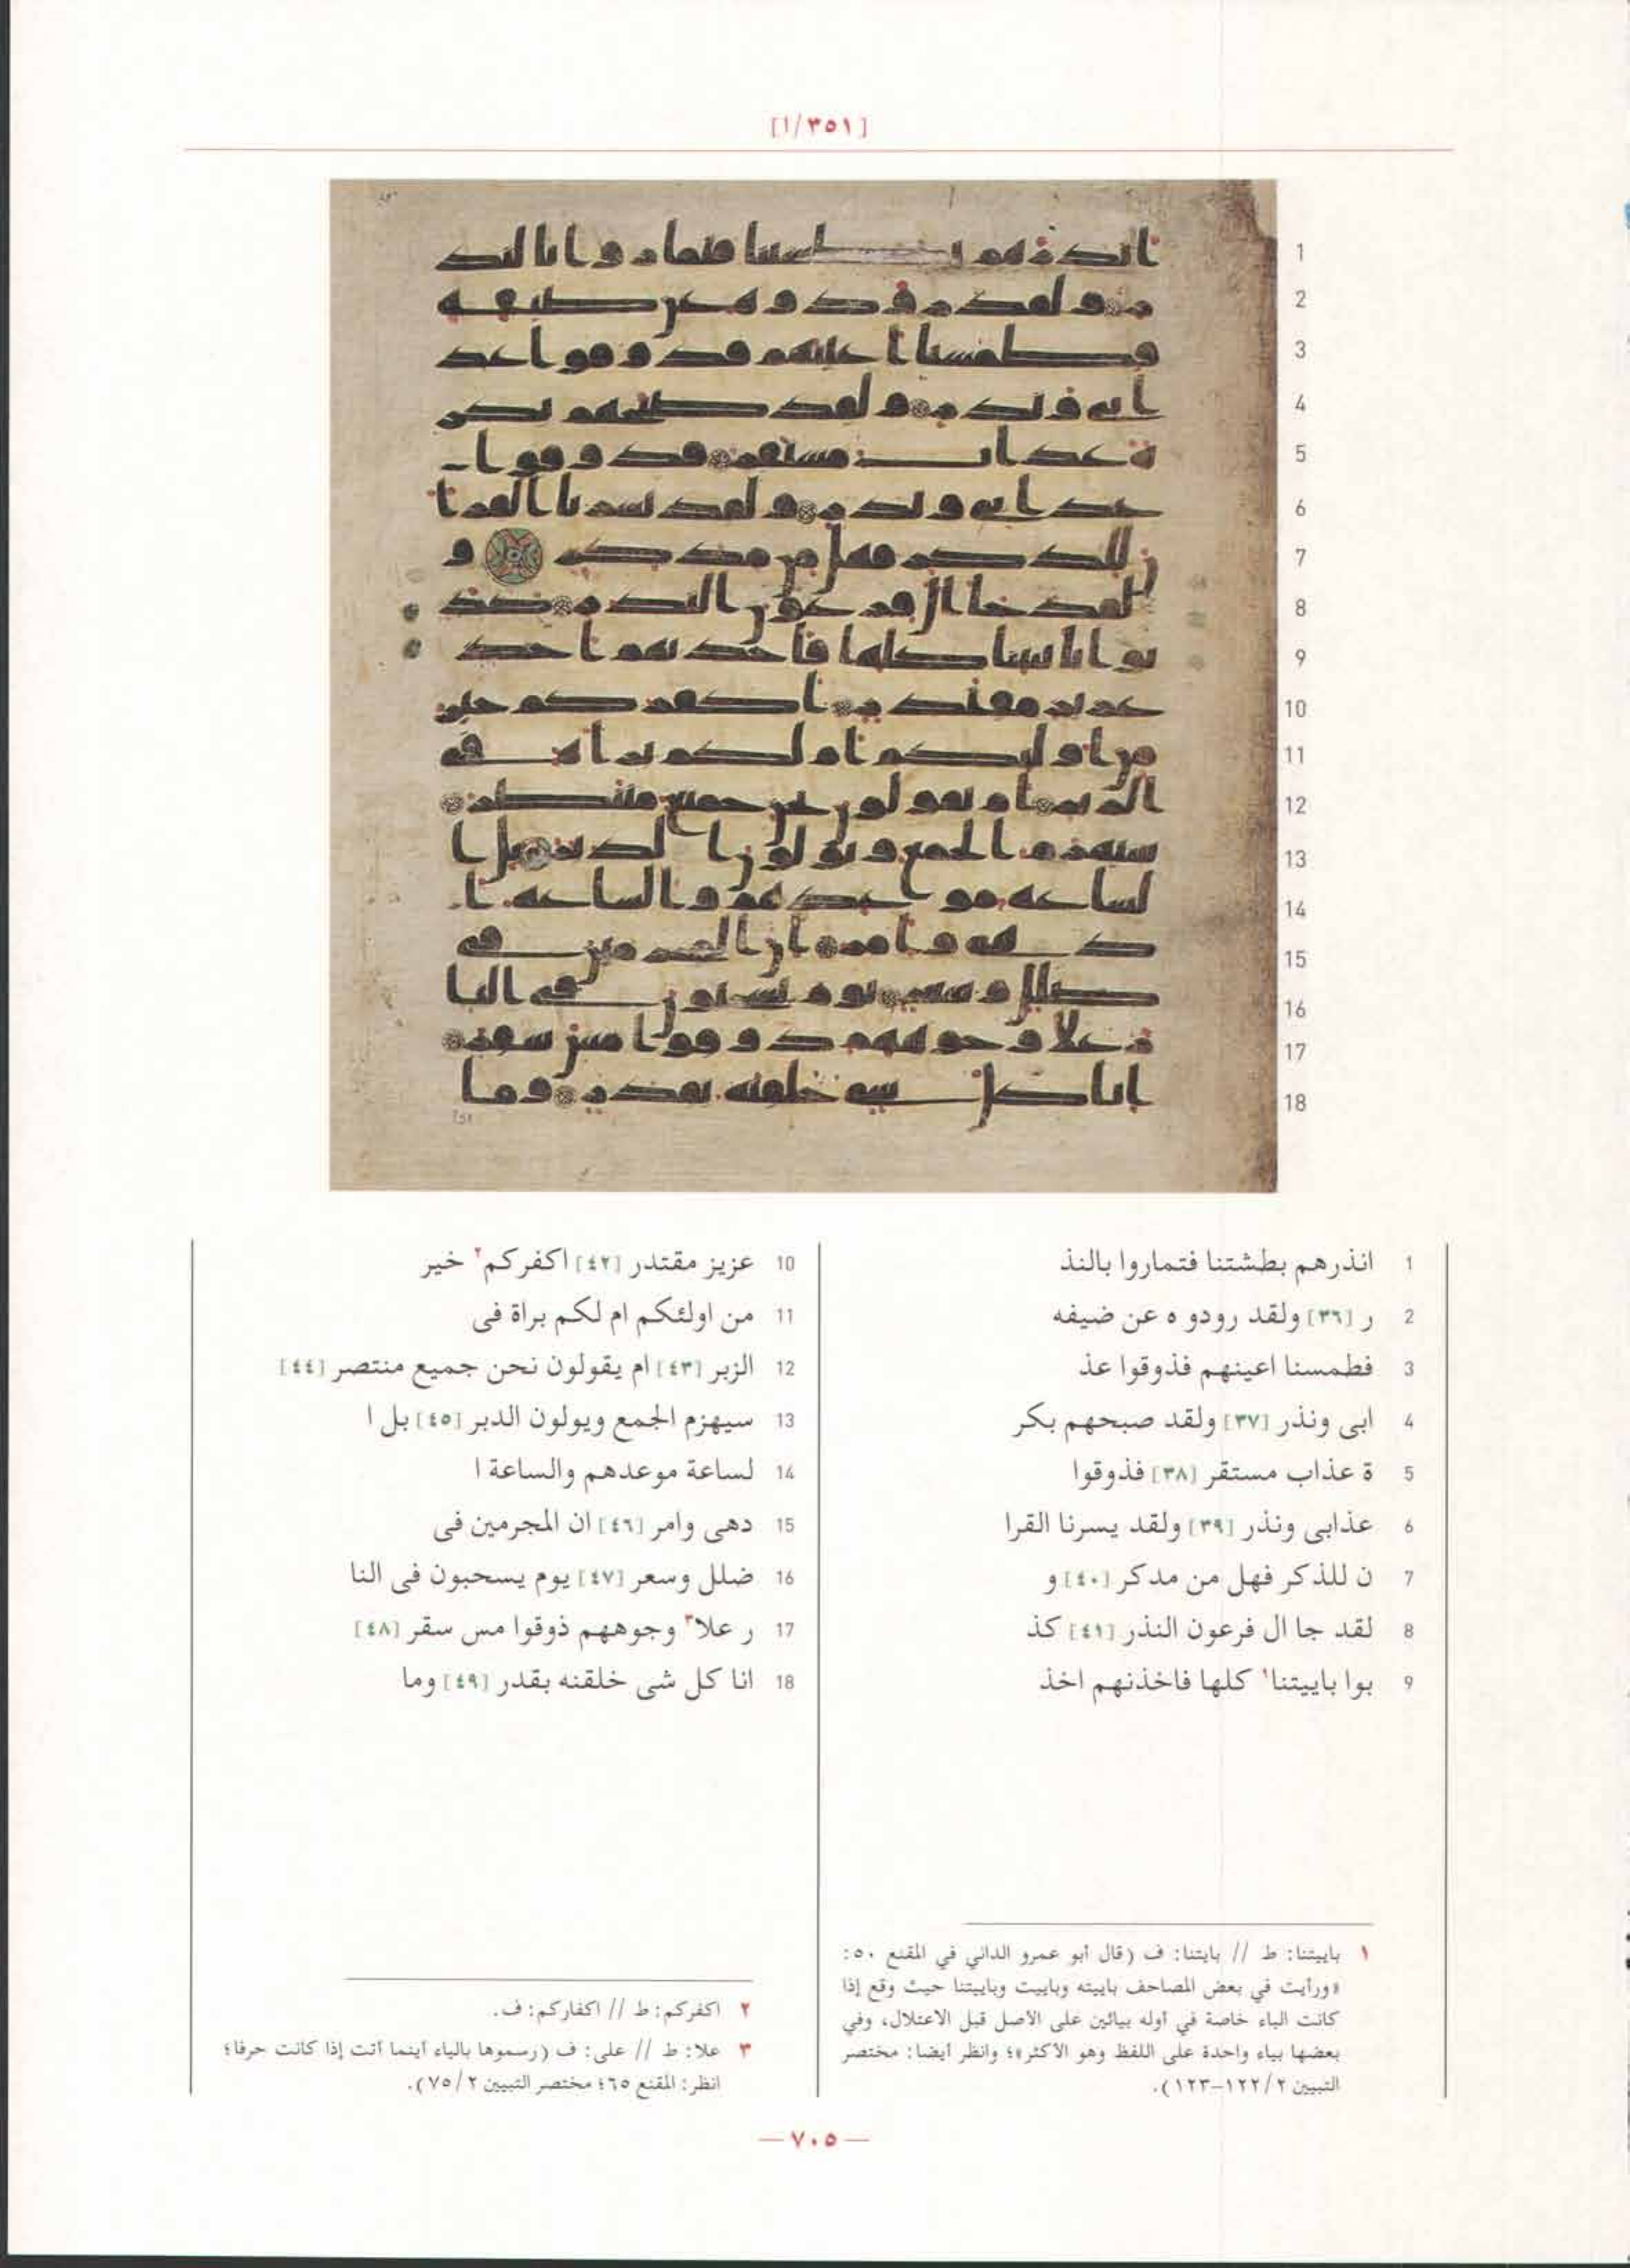 [١/٣٥١]
1 انذرهم بطشتنا فتماروا بالنذ
2 ر [٣٦] ولقد رودو ه عن ضيفه
3 فطمسنا اعينهم فذوقوا عذ
4 ابى ونذر [٣٧] ولقد صبحهم بكر
5 ة عذاب مستقر [٣٨] فذوقوا
6 عذابى ونذر [٣٩] ولقد يسرنا القرا
7 ن للذكر فهل من مدكر [٤٠] و
8 لقد جا ال فرعون النذر [٤١] كذ
9 بوا باييتنا١ كلها فاخذنهم اخذ
10 عزيز مقتدر [٤٢] اكفركم٢ خير
11 من اولئكم ام لكم براة فى
12 الزبر [٤٣] ام يقولون نحن جميع منتصر [٤٤]
13 سيهزم الجمع ويولون الدبر [٤٥] بل ا
14 لساعة موعدهم والساعة ا
15 دهى وامر [٤٦] ان المجرمين فى
16 ضلل وسعر [٤٧] يوم يسحبون فى النا
17 ر علا٣ وجوههم ذوقوا مس سقر [٤٨]
18 انا كل شى خلقنه بقدر [٤٩] وما
١ باييتنا: ط // بايتنا: ف (قال أبو عمرو الداني في المقنع ٥٠:
«ورأيت في بعض المصاحف باييته وباييت وباييتنا حيث وقع إذا
كانت الباء خاصة في أوله بيائين على الأصل قبل الاعتلال، وفي
بعضها بياء واحدة على اللفظ وهو الأكثر»؛ وانظر أيضا: مختصر
التبيين ١٢٢/٢-١٢٣).
٢ اكفركم: ط // اكفاركم: ف.
٣ علا: ط // على: ف (رسموها بالياء أينما أتت إذا كانت حرفا؛
انظر: المقنع ٦٥؛ مختصر التبيين ٧٥/٢).
— ٧٠٥ —